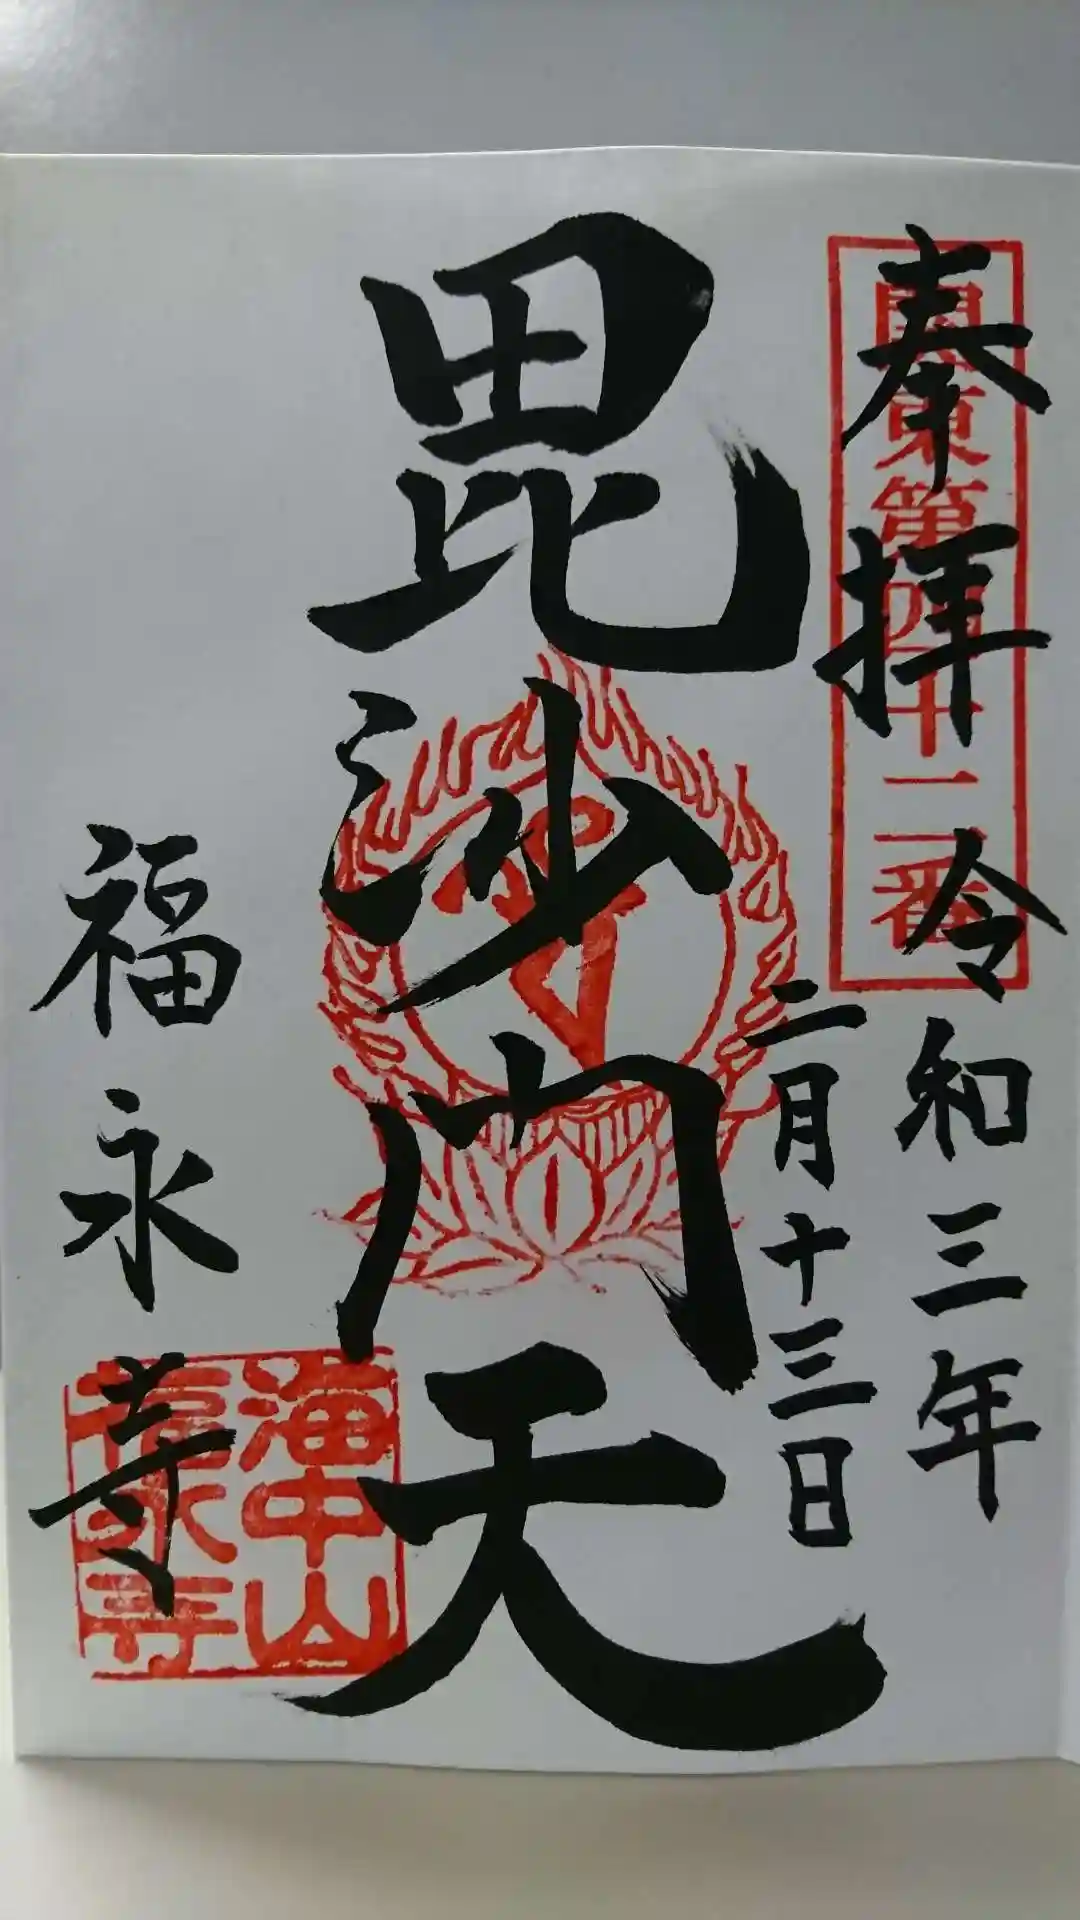 奉拝
關東第四十二番
令和三年
二月十三日
毘沙門天
福永寺
海中山
福永寺